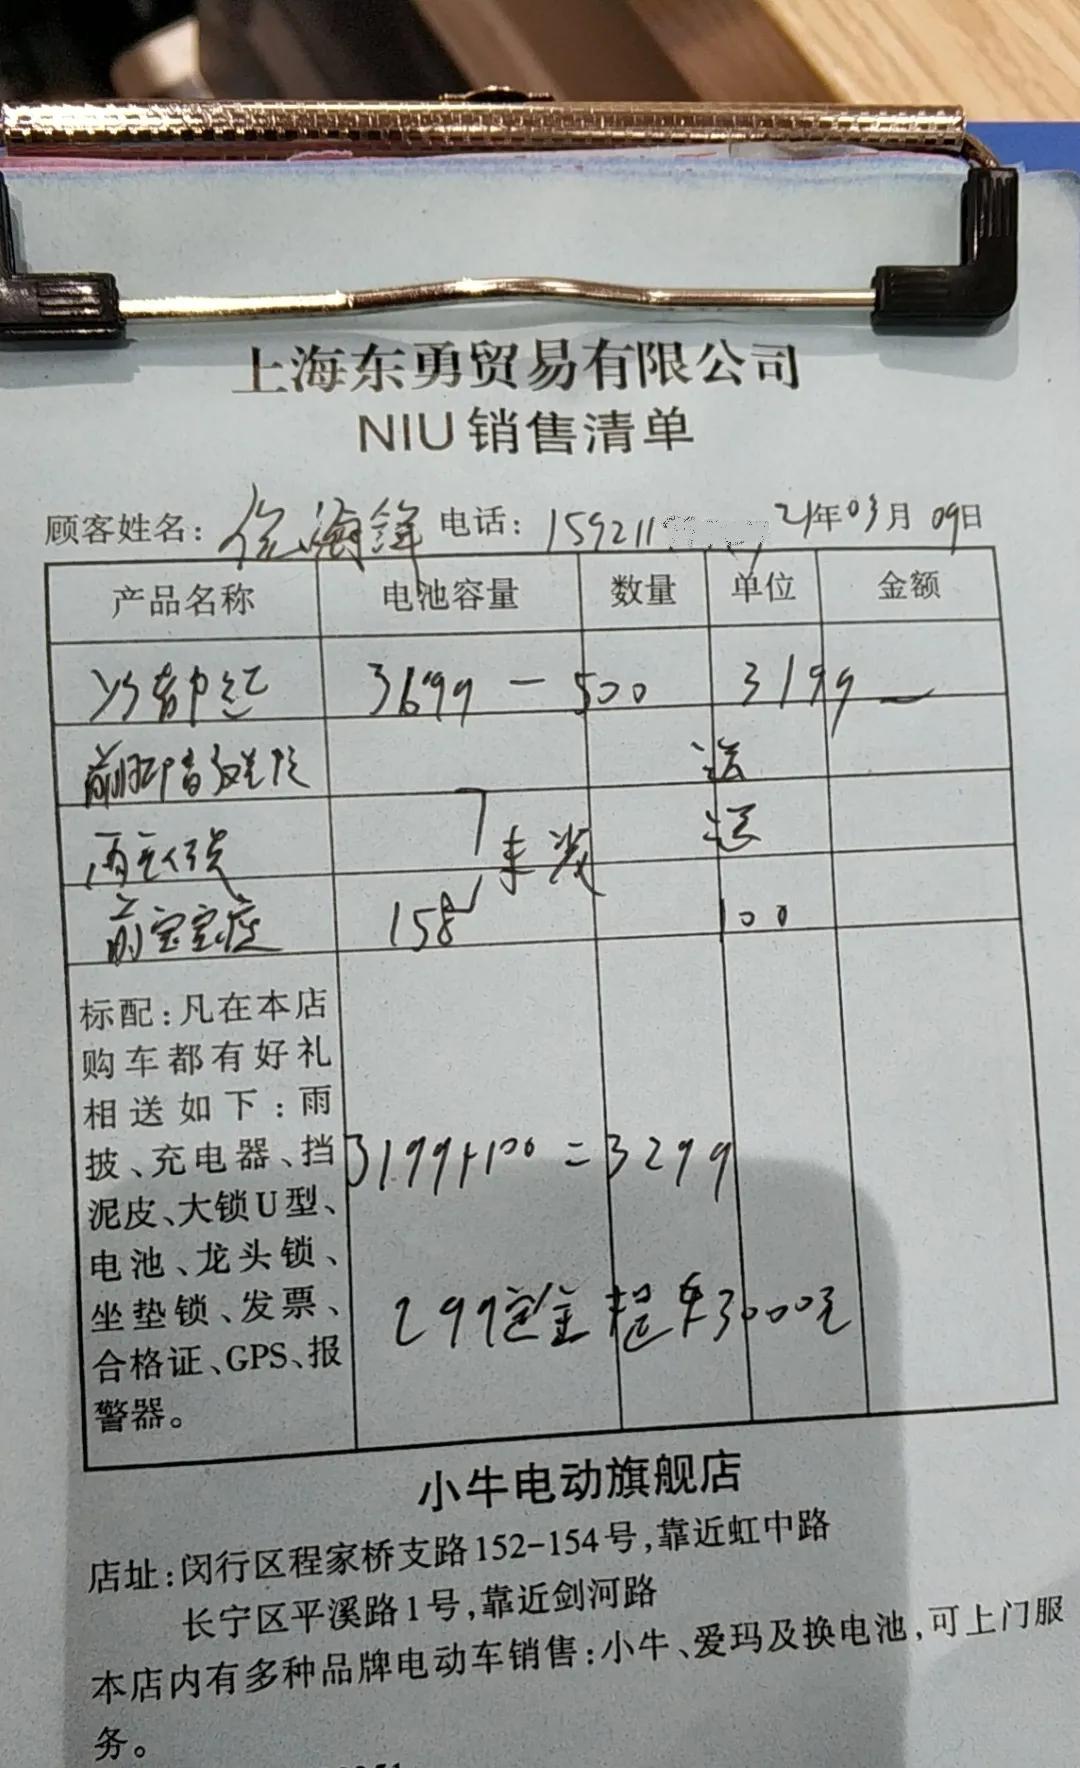 上海东勇贸易有限公司
NIU销售清单
顾客姓名: 徐海锋 电话: 159211 21年03月09日
产品名称 电池容量 数量 单位 金额
都市 红 3699 - 500 3199 -
前 送
送
未装
前宝宝座 158 100
标配:凡在本店
购车都有好礼
相送如下:雨
披、充电器、挡
泥皮、大锁U型、
电池、龙头锁、
坐垫锁、发票、
合格证、GPS、报
警器。
3199+100=3299
299定金 提车3000元
小牛电动旗舰店
店址:闵行区程家桥支路152-154号,靠近虹中路
长宁区平溪路1号,靠近剑河路
本店内有多种品牌电动车销售:小牛、爱玛及换电池,可上门服
务。